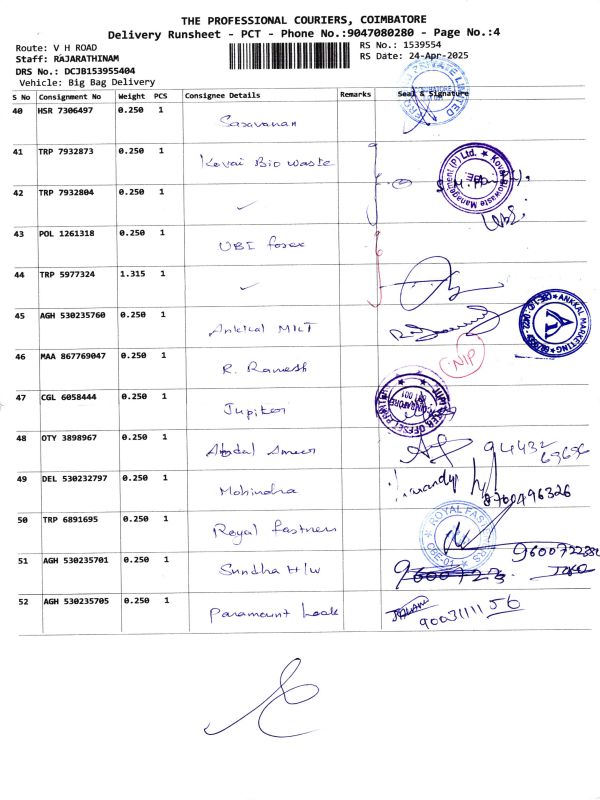 THE PROFESSIONAL COURIERS, COIMBATORE
Delivery Runsheet - PCT - Phone No.:9047080280 - Page No.:4
Route: V H ROAD
RS No.: 1539554
Staff: RAJARATHINAM
RS Date: 24-Apr-2025
DRS No.: DCJB153955404
Vehicle: Big Bag Delivery
S No Consignment No Weight PCS Consignee Details Remarks Seal & Signature
40 HSR 7306497 0.250 1 Saravanan
41 TRP 7932873 0.250 1 Kovai Bio waste
Kovai Biowaste Management (P) Ltd. CBE
42 TRP 7932804 0.250 1 ✓
43 POL 1261318 0.250 1 UBI forex
44 TRP 5977324 1.315 1 ✓
45 AGH 530235760 0.250 1 Ankkal MKT
ANKKAL MARKETING
46 MAA 867769047 0.250 1 R. Ramesh
NIP
47 CGL 6058444 0.250 1 Jupiter
48 OTY 3898967 0.250 1 Abdul Ameer 94432 69696
49 DEL 530232797 0.250 1 Mohindra 8760496326
50 TRP 6891695 0.250 1 Royal fastners
ROYAL FAS
51 AGH 530235701 0.250 1 Sundha H/w
52 AGH 530235705 0.250 1 Paramount Lock 9003111156